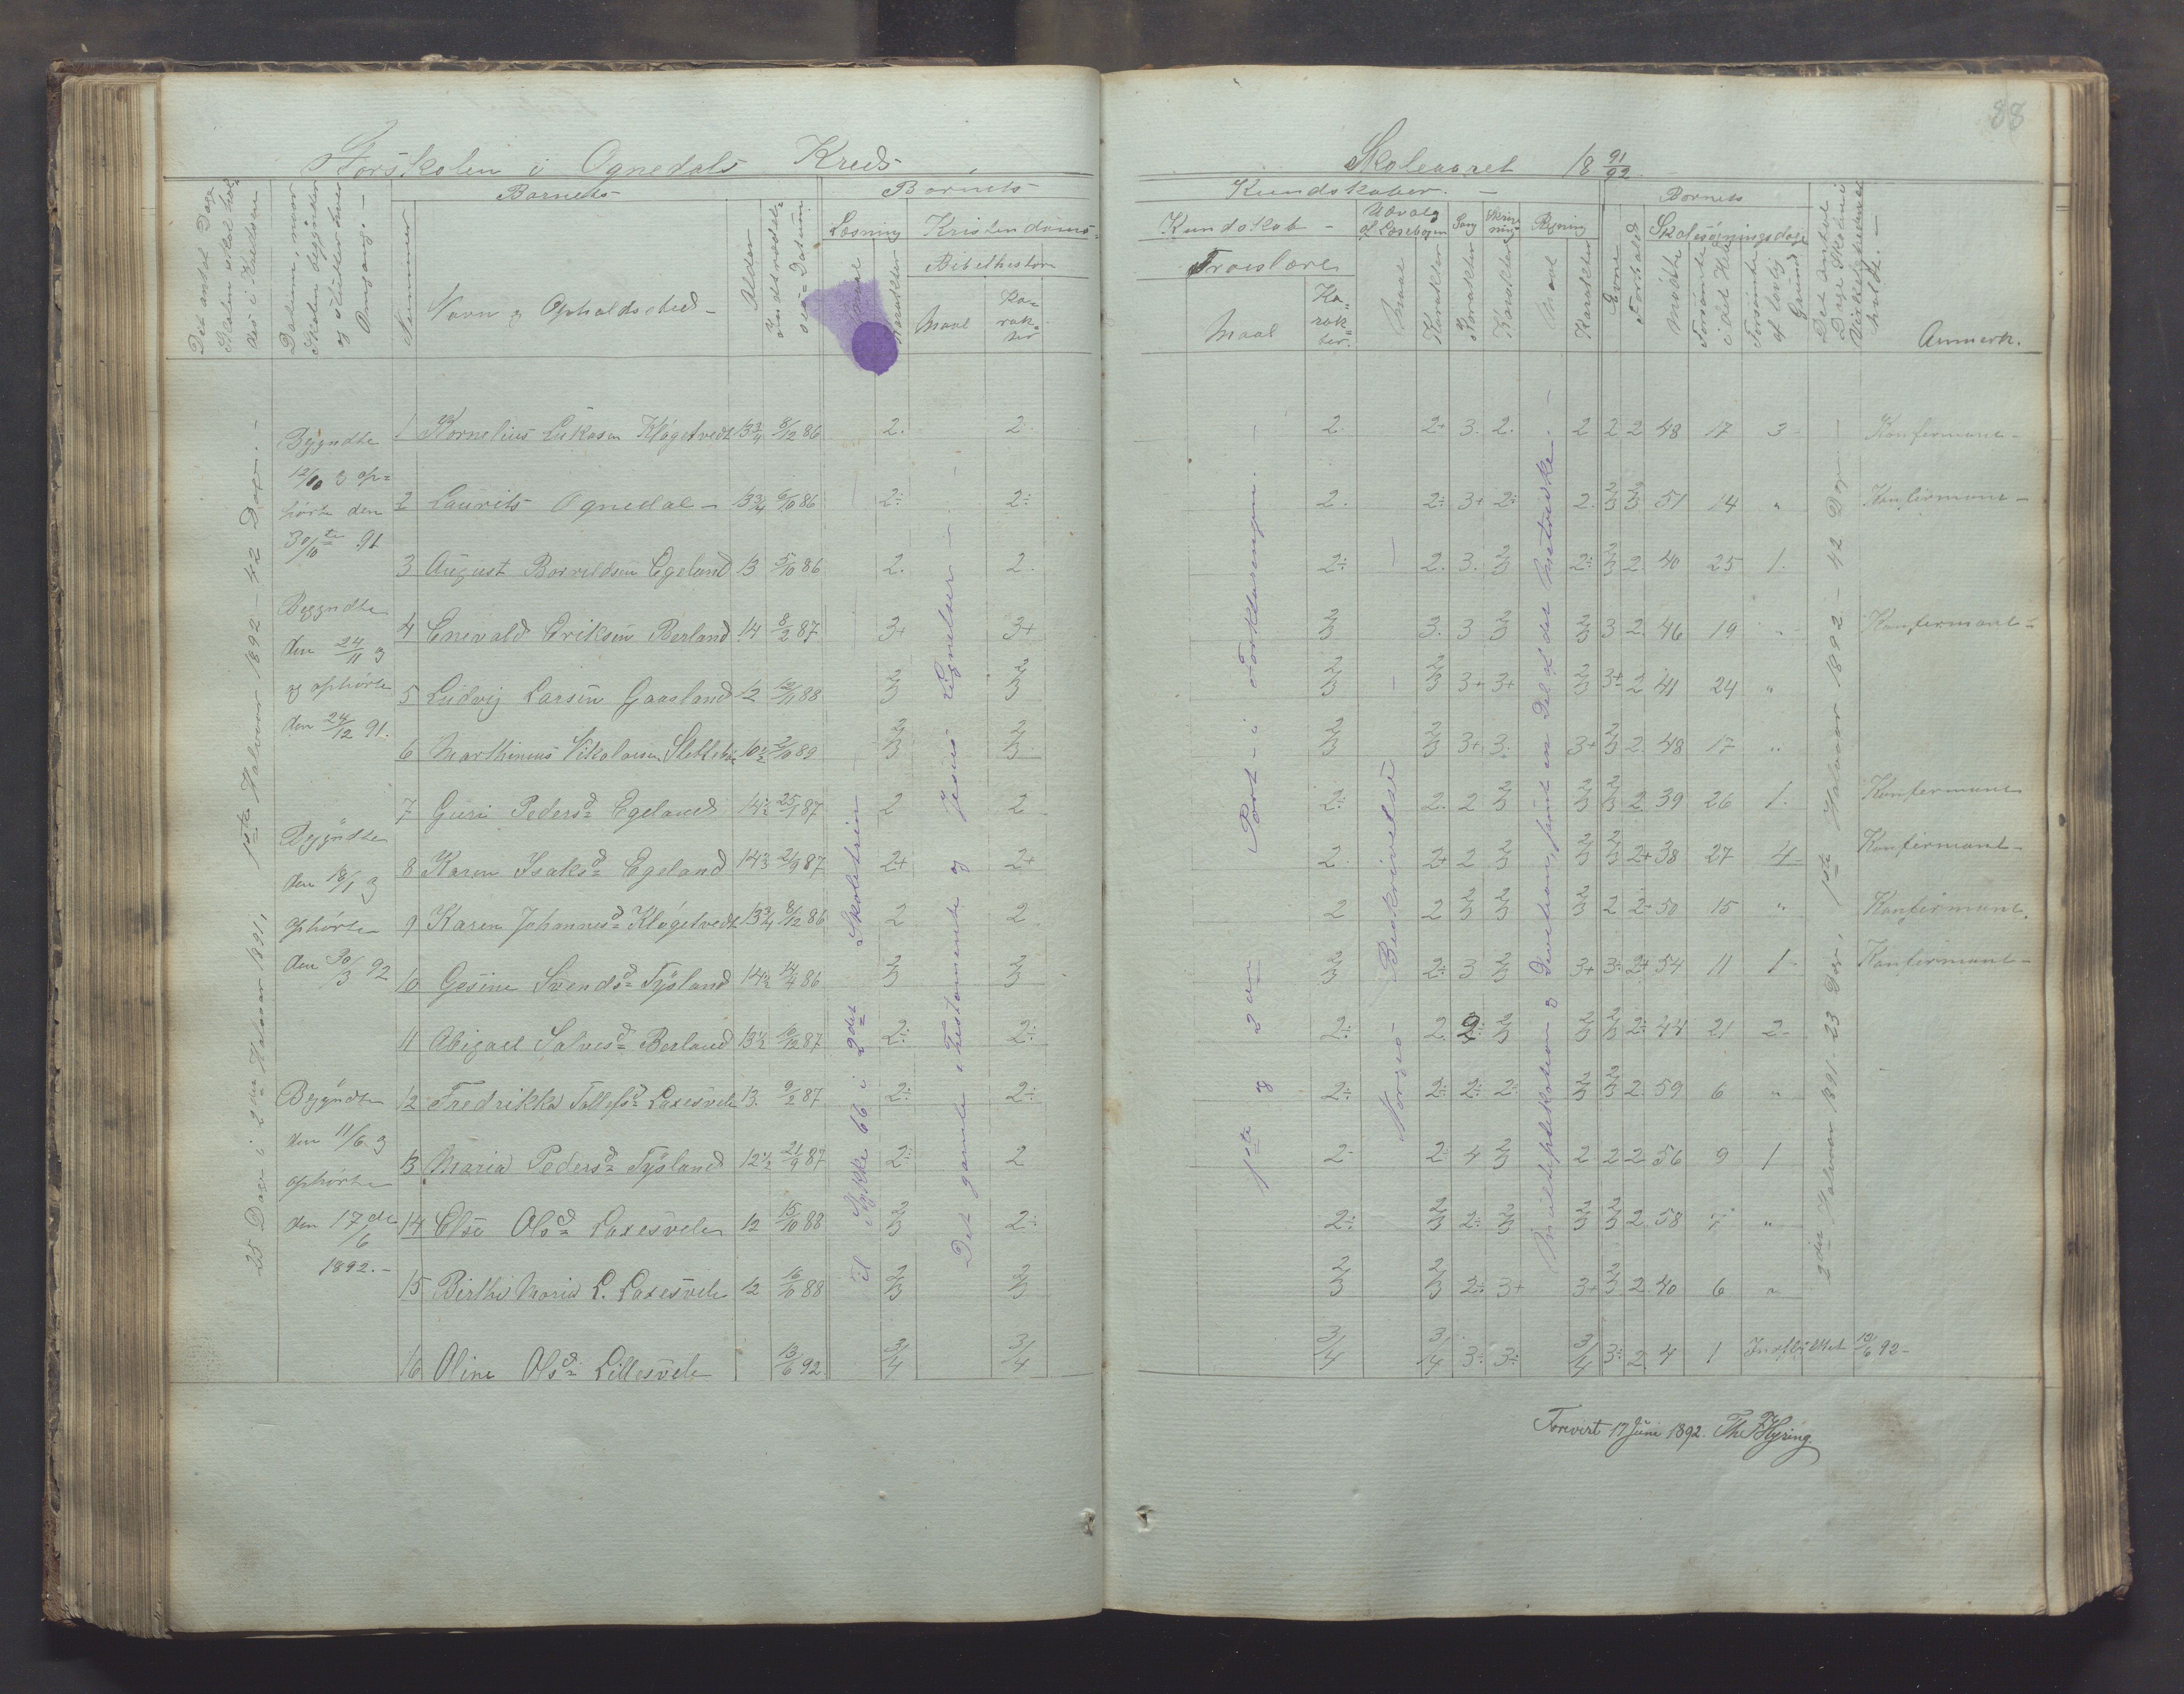 88
Forskolen i Ognedals Kreds
Skoleaaret 18 91/92
Barnets
Barnets
Kundskaber.
Barnets
Det antal Dage Skolen skal holdes i Kredsen
Datum, naar Skolen begynder og slutter hver Omgang. -
Nummer
Navn og Opholdssted -
Alder
Indtrædelses-Datum
Læsning
Maal
Karakter
Kristendoms-
Bibelhistorie
Maal
Karakter
Kundskab -
Troeslære
Maal
Karakter.
Udvalg af Læsebogen
Maal
Karakter
Sang
Karakter
Skrivning
Karakter
Regning
Maal
Karakter
Evne
Forhold
Skolesøgningsdage
Mødte
Forsømte i det Hele
Forsømte af lovlig Grund
Det Antal Dage Skolen i Virkeligheden holdt. -
Anmerk.
25 Dage i 2det Halvaar 1891, 1ste Halvaar 1892 - 42 Dage. -
Begyndte
12/10 og op-
hørte den
30/10 te 91
Begyndte
den 24/11 og
og ophørte
den 24/12 91.
Begyndte
den 18/1 og
ophørte
den 30/3 92
Begyndte
den 11/6 og
ophørte
den 17de/6
1892. -
1 Kornelius Lukasen Kløgetvedt 13 3/4 8/12 86 2. 2. 2. 2+ 3. 2. 2 2 2 48 17 3 - Konfirmant -
2 Laurits Ognedal - 13 3/4 6/10 86 2÷ 2÷ 2. 2÷ 3+ 2÷ 2. 2/3 3 51 14 " Konfirmant -
3 August Borrildsen Egeland 13 5/10 86 2. 2. 2÷ 2. 3. 2/3 2÷ 2/3 2 40 25 1.
4 Enevald Eriksen Berland 14 8/2 87 3+ 3+ 2/3 3. 3 2/3 2/3 3 2. 46 19 " Konfirmant -
5 Ludvig Larsen Gaasland 12 12/11 88 2/3 2/3 2/3 2/3 3+ 3+ 2/3 3+ 2 41 24 "
6 Marthinius Nikolaisen 10 1/2 2/10 89 2/3 2/3 2/3 2/3 3+ 3. 3+ 2/3 2. 48 17 "
7 Guri Pedersd Egeland 14 1/2 25/1 87 2 2 2÷ 2. 2 2/3 2/3 2/3 2. 39 26 1. Konfirmant
8 Karen Isaksd Egeland 14 3/4 2/9 87 2+ 2+ 2 2+ 2 2/3 2/3 2/3 2+ 38 27 4 - Konfirmant -
9 Karen Johannesd Kløgetvedt 13 3/4 8/12 86 2 2 2 2 2/3 2/3 2/3 2 2 50 15 " Konfirmant.
10 Gesine Svendsd Tysland 14 1/2 14/4 86 2/3 2/3 2/3 2÷ 3 2/3 3+ 3÷ 2+ 54 11 1 - Konfirmant -
11 Abigael Salvesd Berland 13 1/2 10/12 87 2÷ 2÷ 2÷ 2. 2÷ 2/3 2/3 2/3 2÷ 44 21 2 -
12 Fredrikka Tollefsd Laxesvele 13. 9/2 87 2÷ 2÷ 2÷ 2÷ 2÷ 2÷ 2/3 2/3 2. 59 6 "
13 Maria Pedersd Tysland 12 1/2 21/9 87 2÷ 2 2 - 2 4 2/3 2 2 2 56 9 1
14 Else Olsd Laxesvele 12 15/10 88 2/3 2÷ 2÷ 2/3 2÷ 2/3 2/3 2/3 2 58 7 "
15 Birthe Maria L. Laxesvele 12 10/10 88 2/3 2/3 2/3 2/3 2÷ 3+ 3+ 2/3 2. 40 6 "
16 Oline Olsd Lillesvele 13/6 92. 3/4 3/4 3/4 3/4 3÷ 3÷ 3/4 3÷ 2. 4 1 Indflyttet 13/6 92 -
til Stykke 66 i 2det Skoletrin -
Det gamle Testamente og Jesus Lignelser -
1ste og 2den Part - i Forklaringen. -
Norges Beskrivelse -
Multiplikation og Division, samt en Del af det Metriske. -
2det Halvaar 1891. 23 Dage, 1ste Halvaar 1892 - 42 Dage -
Forevist 17 Juni 1892.